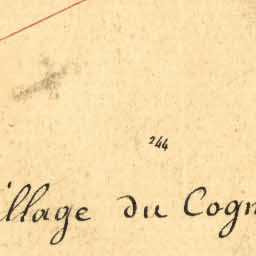 244
illage du Cogn